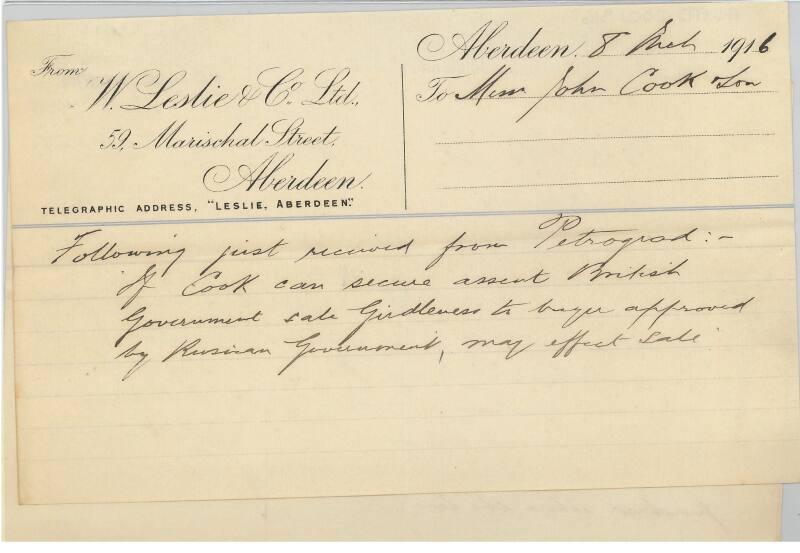 Aberdeen. 8 Mch 1916
From
W. Leslie & Co. Ltd.,
59, Marischal Street,
Aberdeen.
TELEGRAPHIC ADDRESS, "LESLIE, ABERDEEN."
To Messrs John Cook & Son
Following just received from Petrograd:-
"If Cook can secure assent British
Government sale Girdleness to buyer approved
by Russian Government, may effect sale"